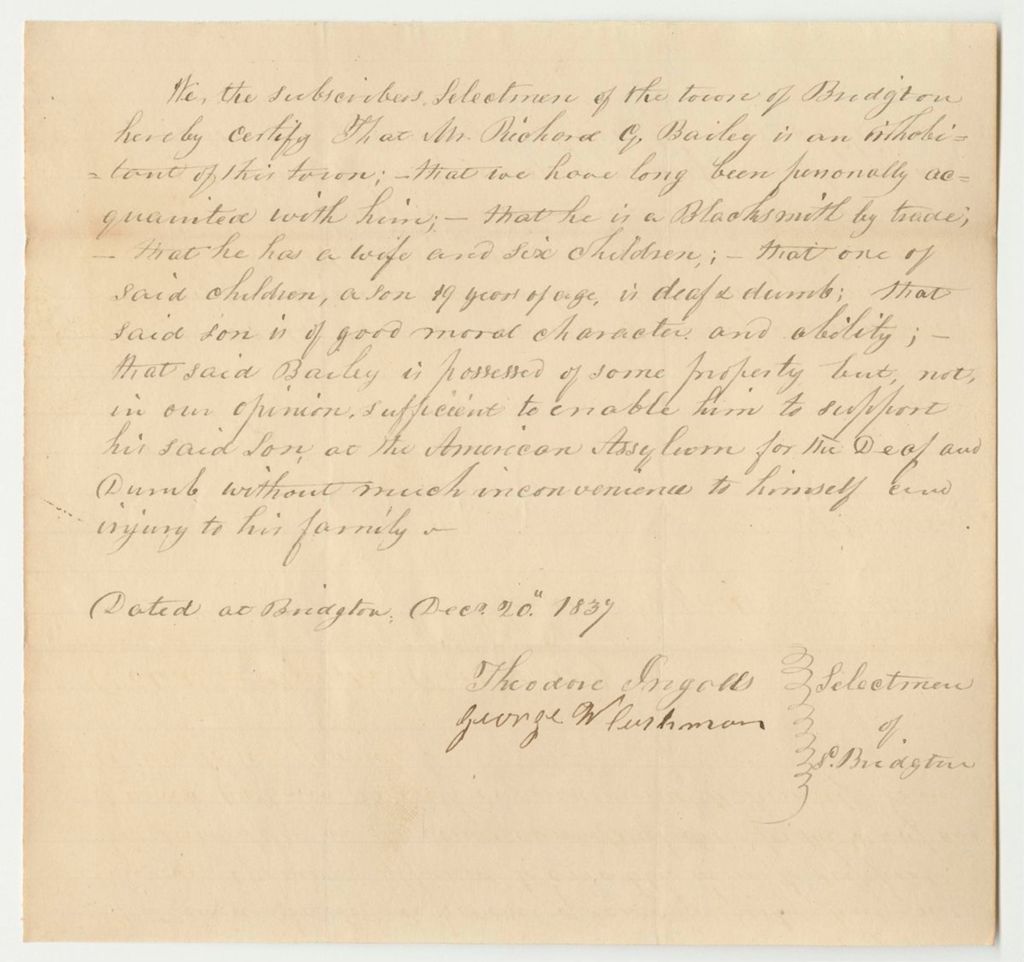 We, the subscribers, Selectmen of the town of Bridgton
hereby certify That Mr. Richard G. Bailey is an inhabi=
=tant of this town; – that we have long been personally ac=
quainted with him; – that he is a Blacksmith by trade;
– that he has a wife and six children; – that one of
said children, a son 19 years of age, is deaf & dumb; that
said son is of good moral character and ability; –
that said Bailey is possessed of some property but, not,
in our opinion, sufficient to enable him to support
his said Son, at the American Assylum for the Deaf and
Dumb without much inconvenience to himself and
injury to his family –
Dated at Bridgton, Decr. 20." 1837
Theodore Ingalls
George W Cushman
Selectmen
of
Bridgton